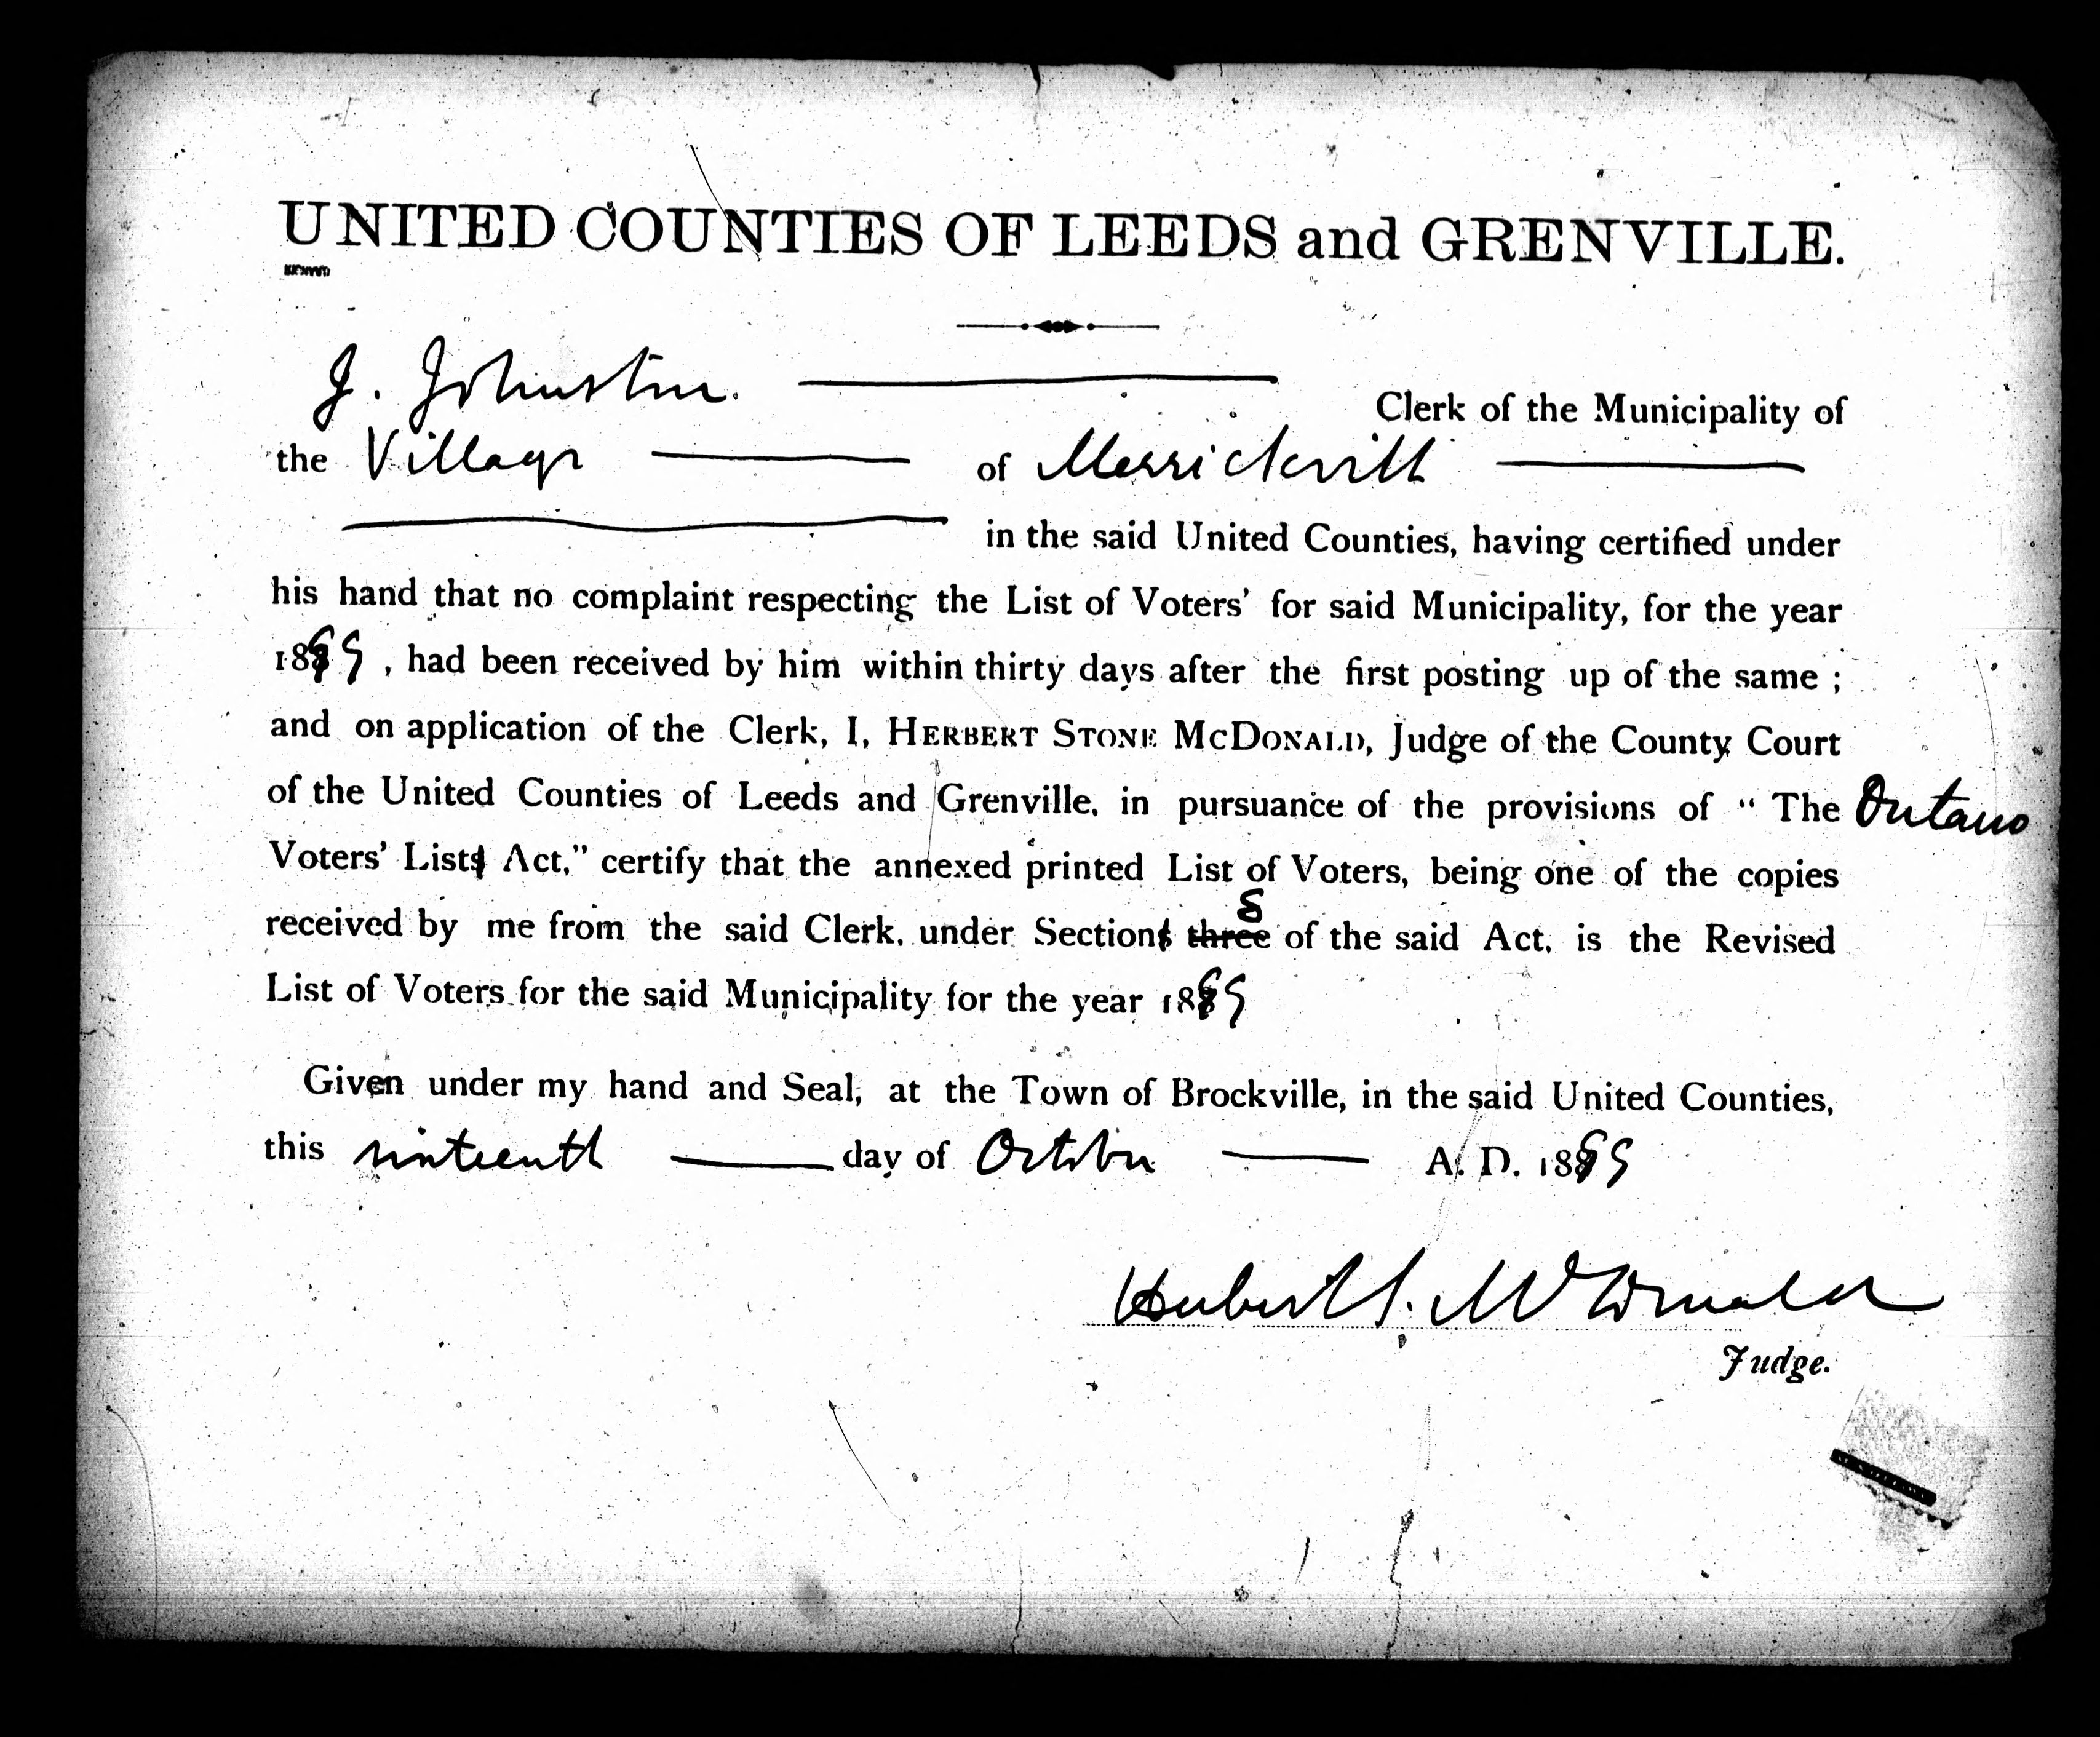 UNITED COUNTIES OF LEEDS and GRENVILLE.
J. Johnston. Clerk of the Municipality of
the Village of Merrickville
in the said United Counties, having certified under
his hand that no complaint respecting the List of Voters' for said Municipality, for the year
1899, had been received by him within thirty days after the first posting up of the same ;
and on application of the Clerk, I, HERBERT STONE MCDONALD, Judge of the County Court
of the United Counties of Leeds and Grenville, in pursuance of the provisions of “ The Ontario
Voters' Lists Act,” certify that the annexed printed List of Voters, being one of the copies
8
received by me from the said Clerk, under Sections three of the said Act, is the Revised
List of Voters for the said Municipality for the year 1899
Given under my hand and Seal, at the Town of Brockville, in the said United Counties,
this sixteenth day of October A. D. 1899
Herbert S. McDonald
Judge.